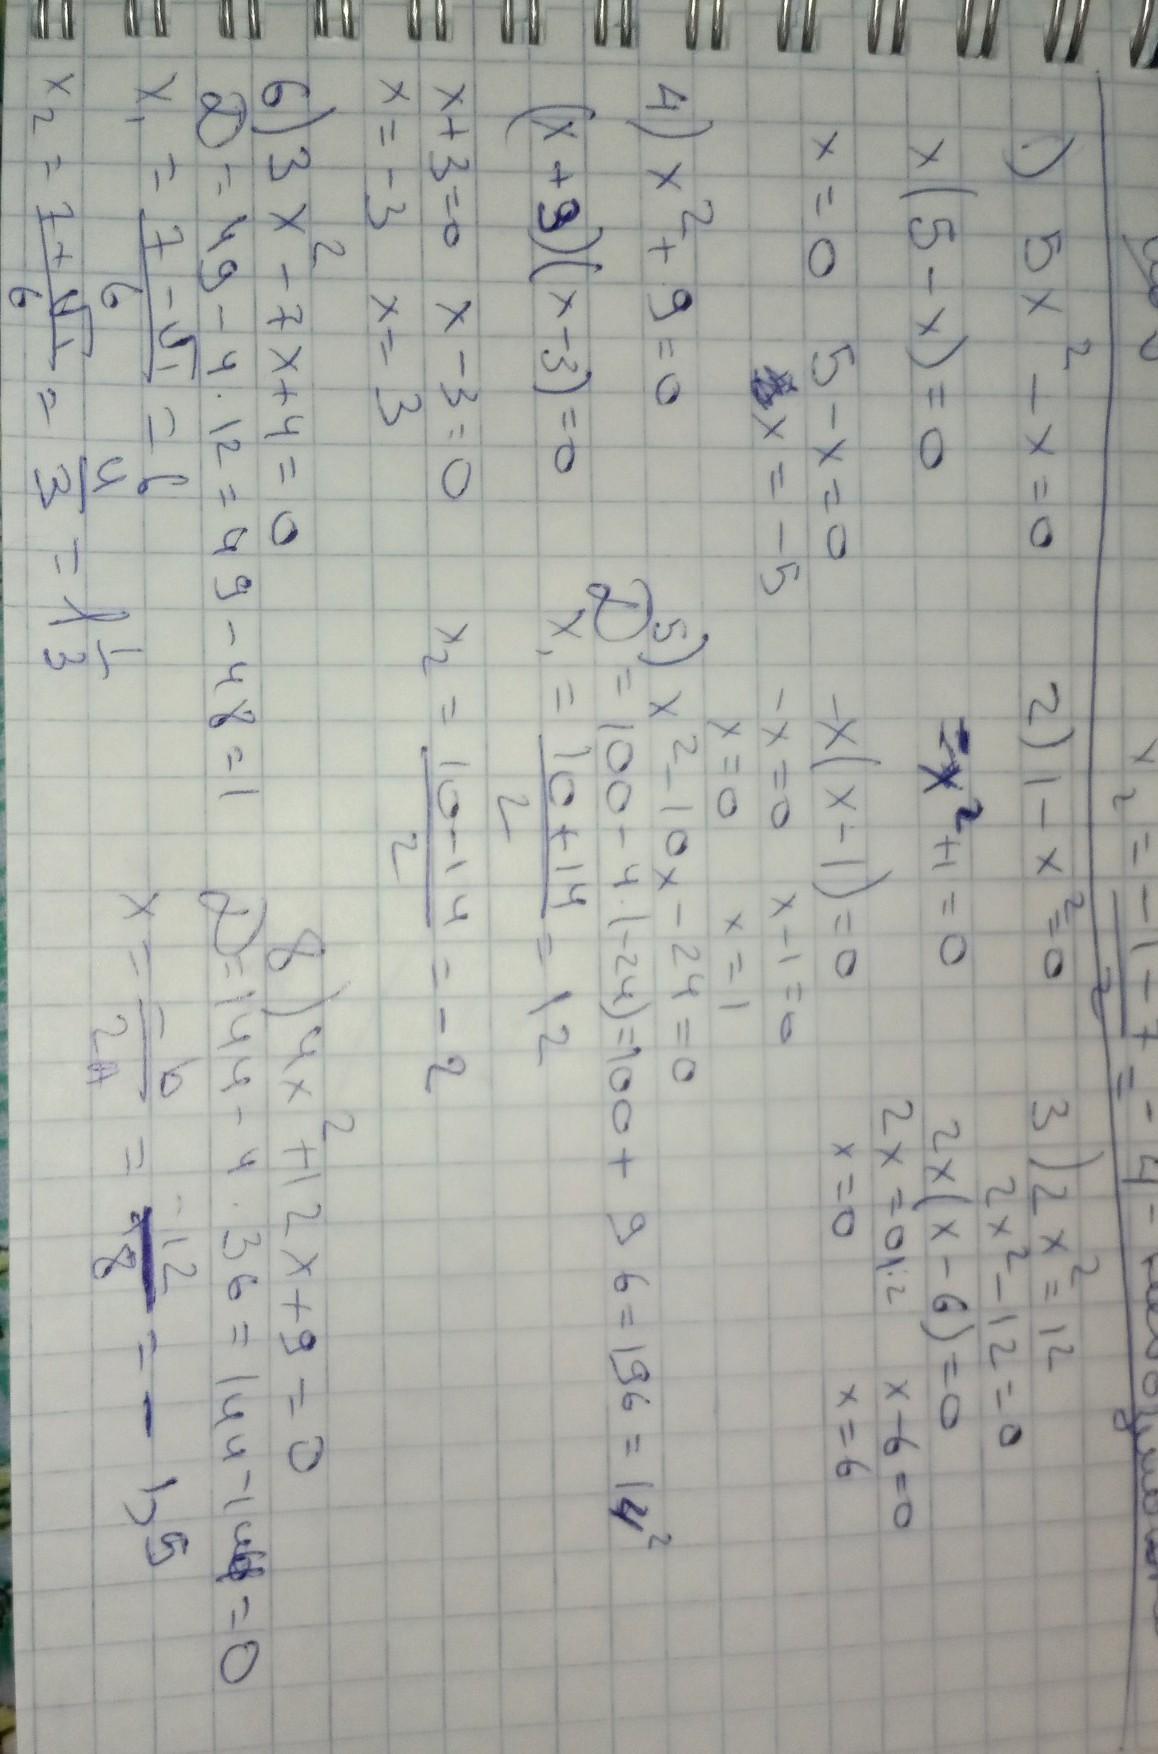 x₂ = (-1-7)/2 = -4 -
1) 5x² - x = 0
x(5-x) = 0
x = 0   5-x = 0
x = -5
2) 1 - x² = 0
-x² + 1 = 0
-x(x-1) = 0
-x = 0   x-1 = 0
x = 0   x = 1
3) 2x² = 12
2x² - 12 = 0
2x(x-6) = 0
2x = 0 |:2   x-6 = 0
x = 0   x = 6
4) x² + 9 = 0
(x+3)(x-3) = 0
x+3=0   x-3=0
x = -3   x = 3
5) x² - 10x - 24 = 0
D = 100 - 4·(-24) = 100 + 96 = 196 = 14²
x₁ = (10+14)/2 = 12
x₂ = (10-14)/2 = -2
6) 3x² - 7x + 4 = 0
D = 49 - 4·12 = 49 - 48 = 1
x₁ = (7-√1)/6 = 1
x₂ = (7+√1)/6 = 4/3 = 1 1/3
8) 4x² + 12x + 9 = 0
D = 144 - 4·36 = 144 - 144 = 0
x = -b/2a = -12/8 = -1,5